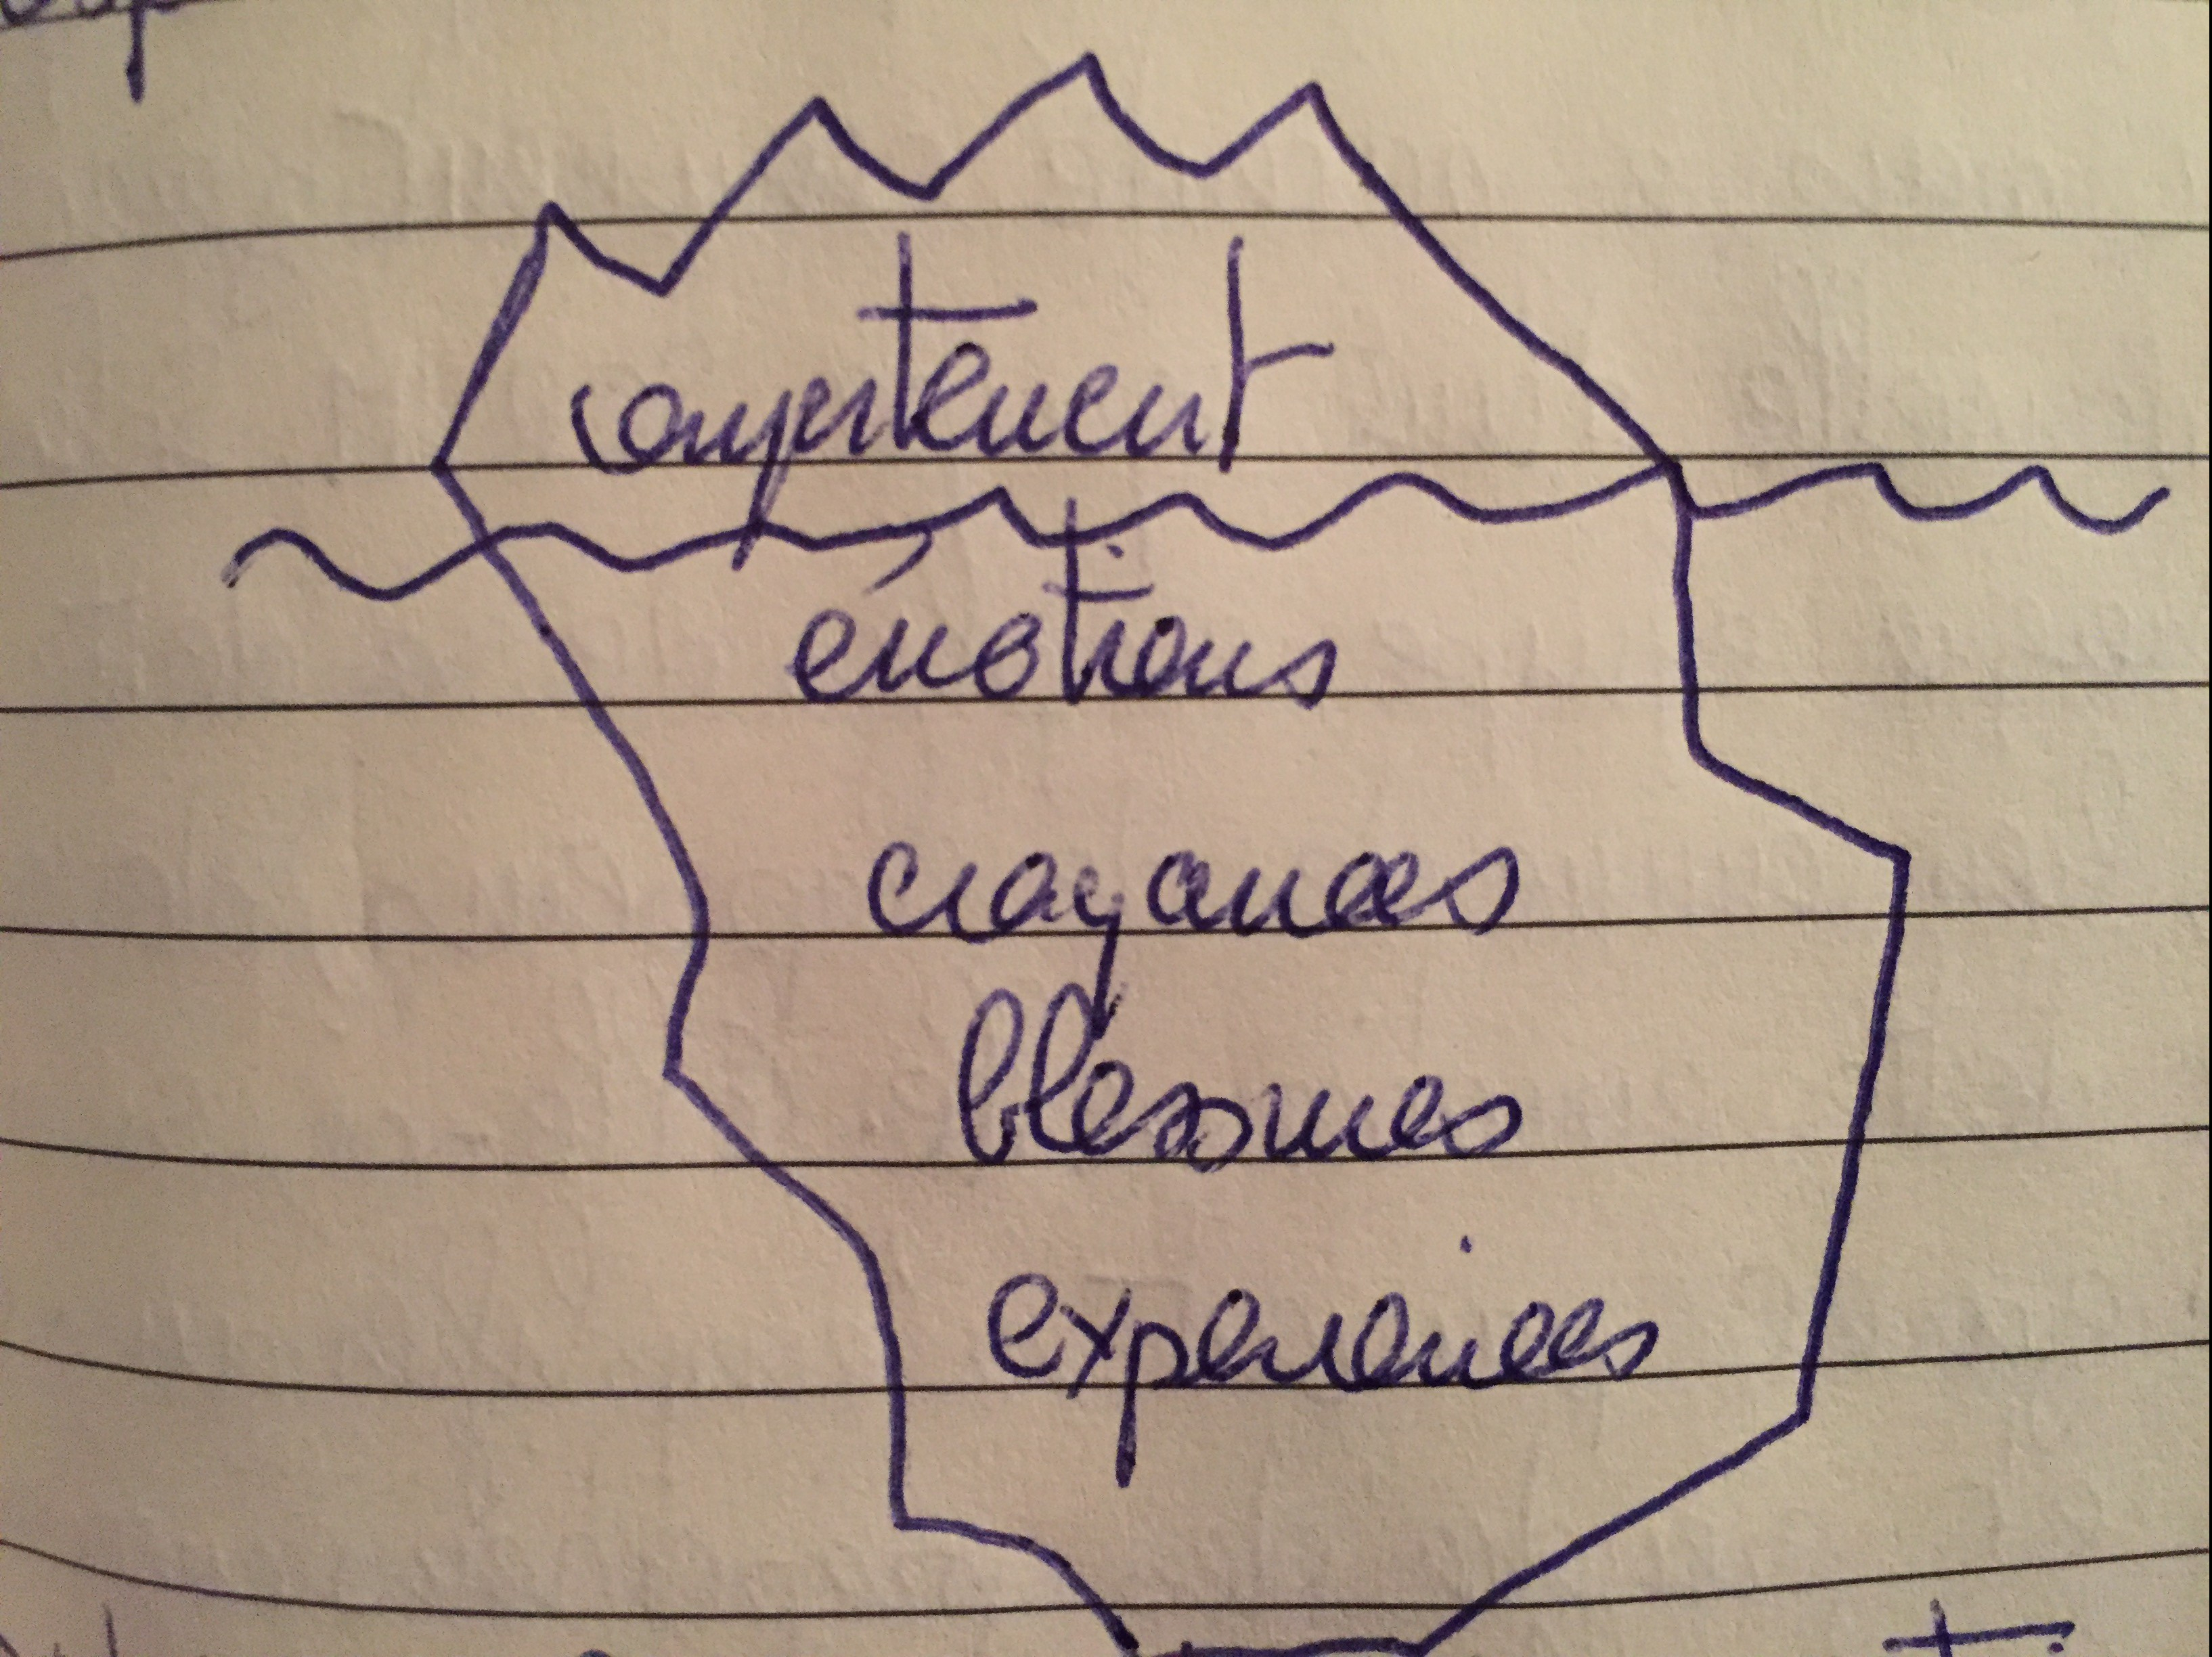 comportement
émotions
croyances
blessures
experiences